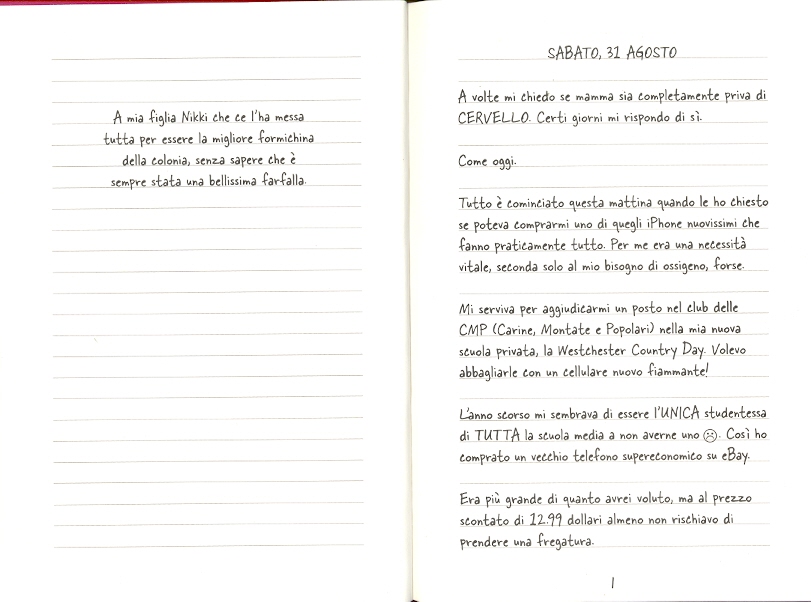 A mia figlia Nikki che ce l'ha messa
tutta per essere la migliore formichina
della colonia, senza sapere che è
sempre stata una bellissima farfalla.
SABATO, 31 AGOSTO
A volte mi chiedo se mamma sia completamente priva di
CERVELLO. Certi giorni mi rispondo di sì.
Come oggi.
Tutto è cominciato questa mattina quando le ho chiesto
se poteva comprarmi uno di quegli iPhone nuovissimi che
fanno praticamente tutto. Per me era una necessità
vitale, seconda solo al mio bisogno di ossigeno, forse.
Mi serviva per aggiudicarmi un posto nel club delle
CMP (Carine, Montate e Popolari) nella mia nuova
scuola privata, la Westchester Country Day. Volevo
abbagliarle con un cellulare nuovo fiammante!
L'anno scorso mi sembrava di essere l'UNICA studentessa
di TUTTA la scuola media a non averne uno ☹. Così ho
comprato un vecchio telefono supereconomico su eBay.
Era più grande di quanto avrei voluto, ma al prezzo
scontato di 12.99 dollari almeno non rischiavo di
prendere una fregatura.
1